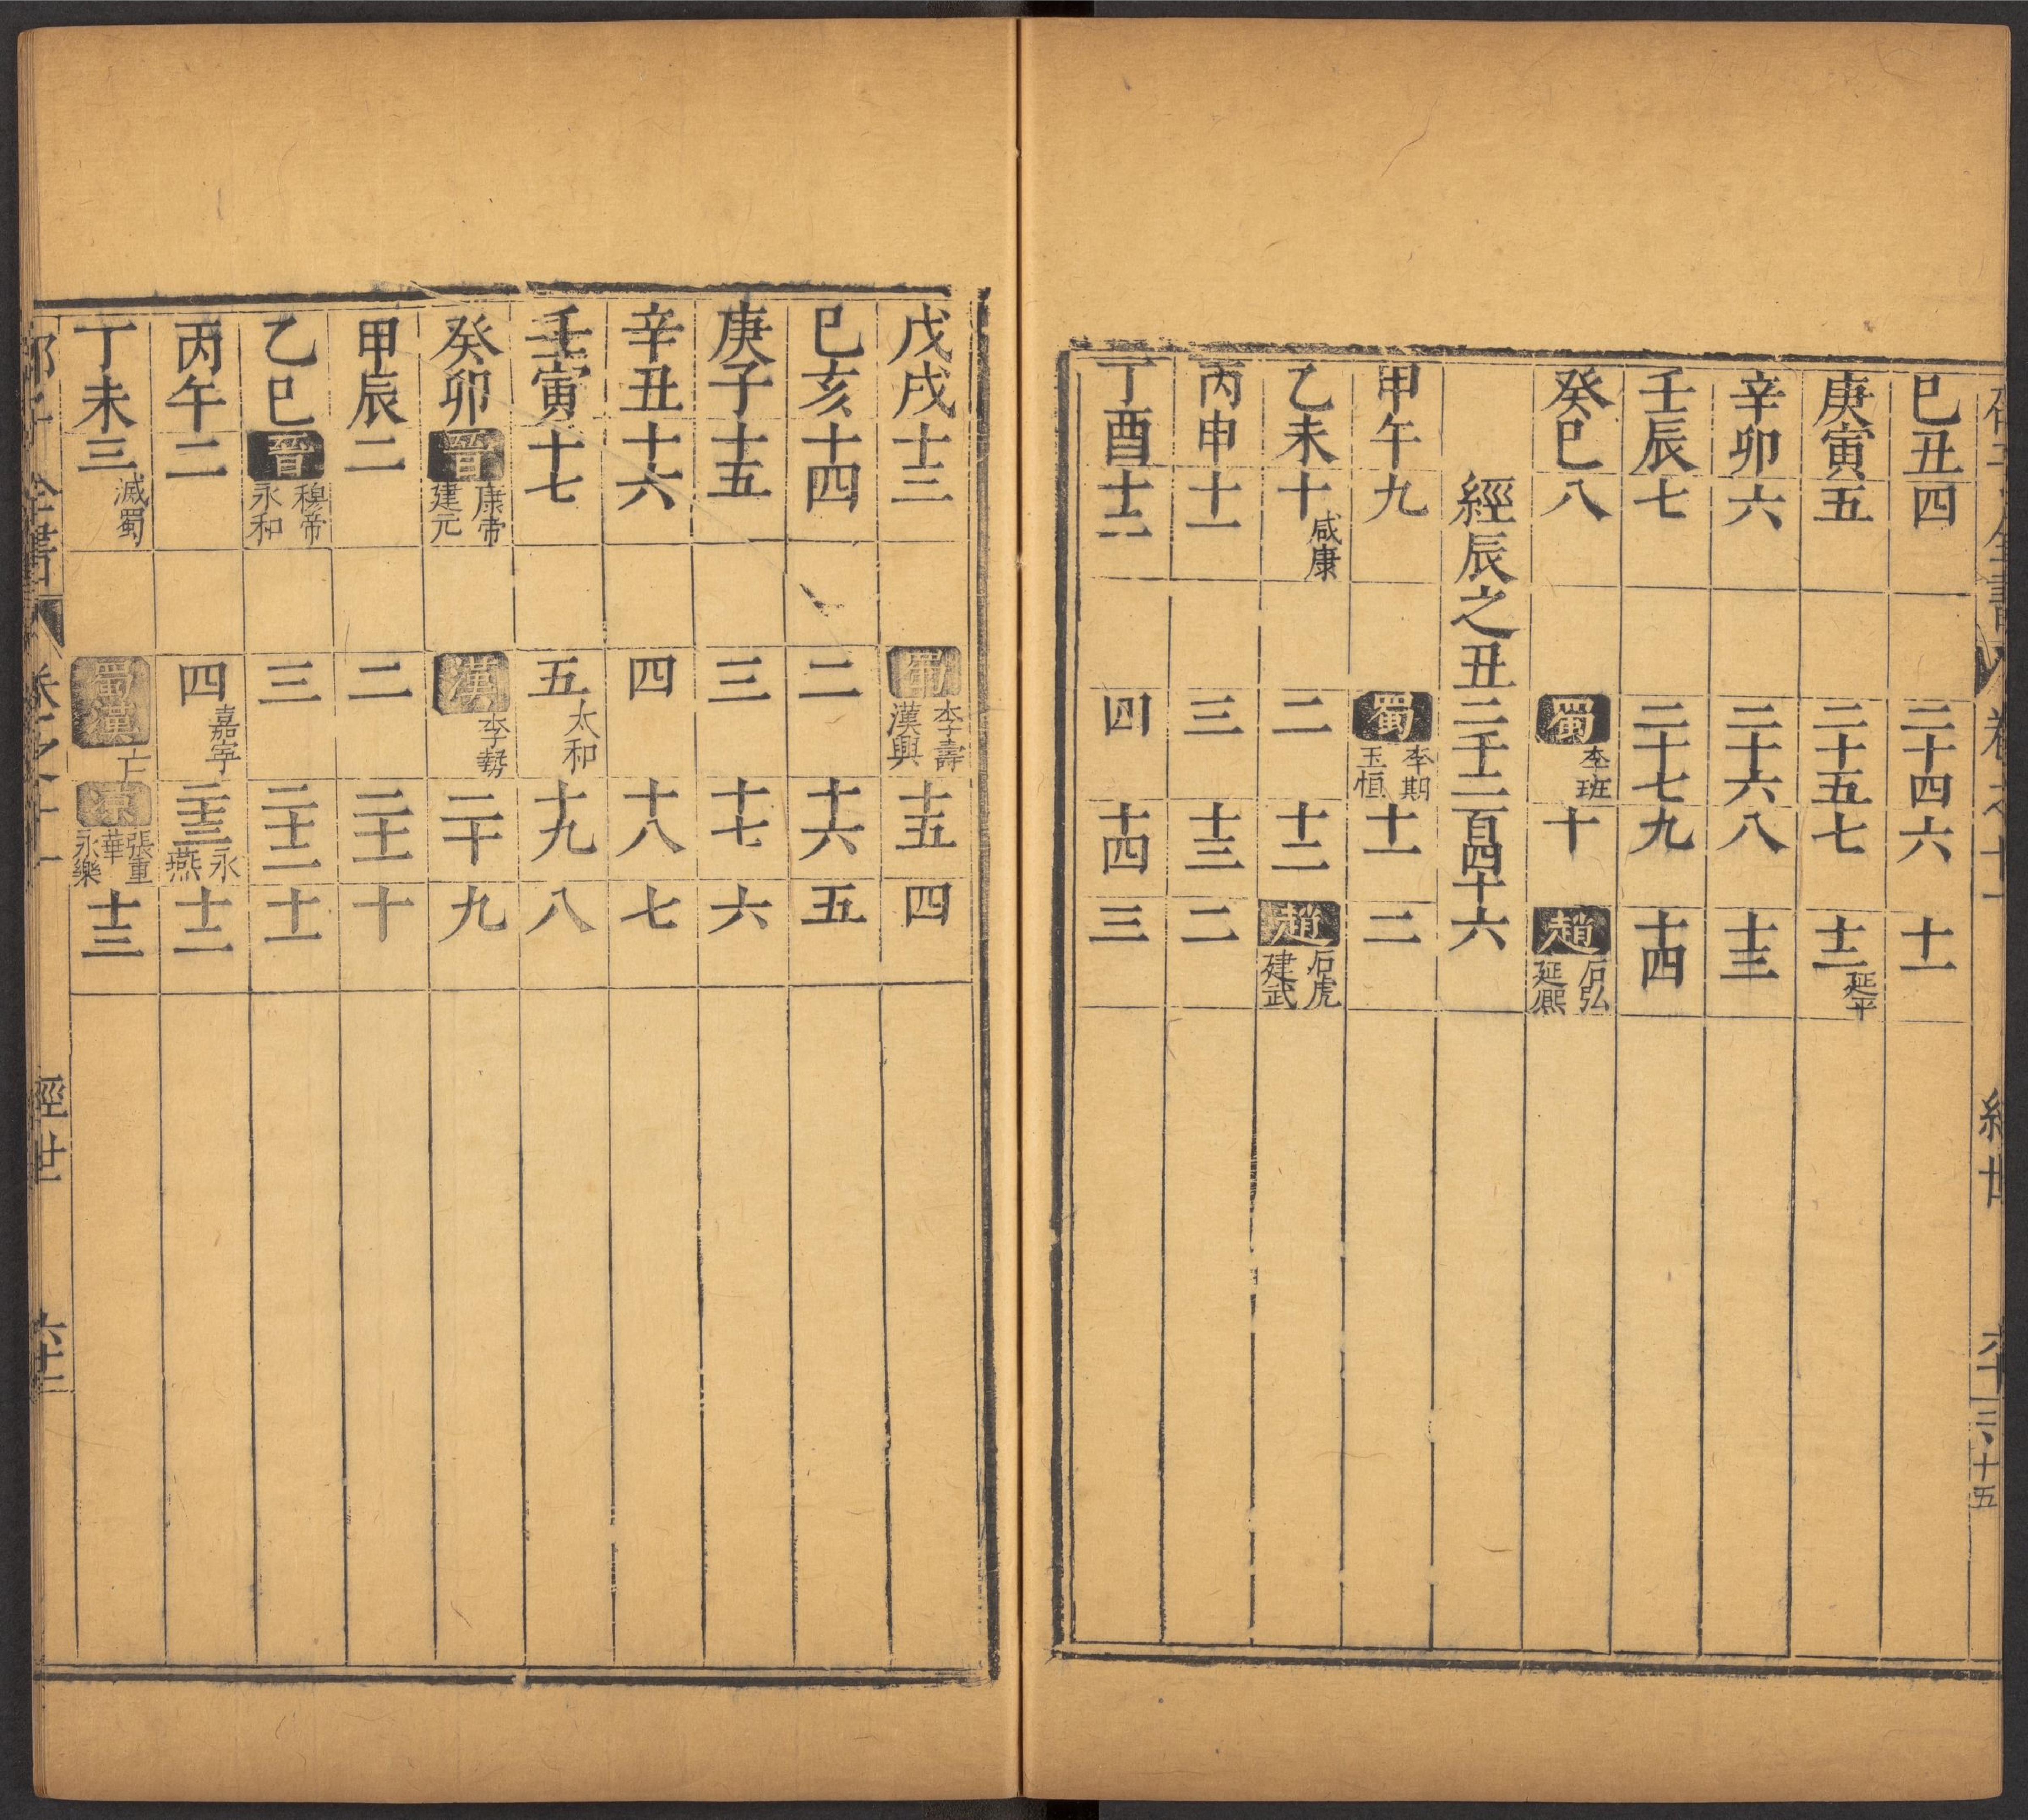 巳丑四 二十四 六 十一
庚寅五 二十五 七 十二 延平
辛卯六 二十六 八 十三
壬辰七 二十七 九 十四
癸巳八 蜀 李班 十 趙 石弘 延熙
經辰之丑二千一百四十六
甲午九 蜀 李期 玉恒 十一 二
乙未十 咸康 二 十二 趙 石虎 建武
丙申十一 三 十三 二
丁酉十二 四 十四 三
戊戌十三 蜀 李壽 漢興 十五 四
巳亥十四 二 十六 五
庚子十五 三 十七 六
辛丑十六 四 十八 七
壬寅十七 五 太和 十九 八
癸卯 晉 康帝 建元 漢 李勢 二十 九
甲辰二 二 二十一 十
乙巳 晉 穆帝 永和 三 二十二 十一
丙午二 四 嘉寧 二十三 永 燕 十二
丁未三 滅蜀 蜀漢 亡 涼 張重 華 永樂 十三
全書 卷之十一 經世 六十二